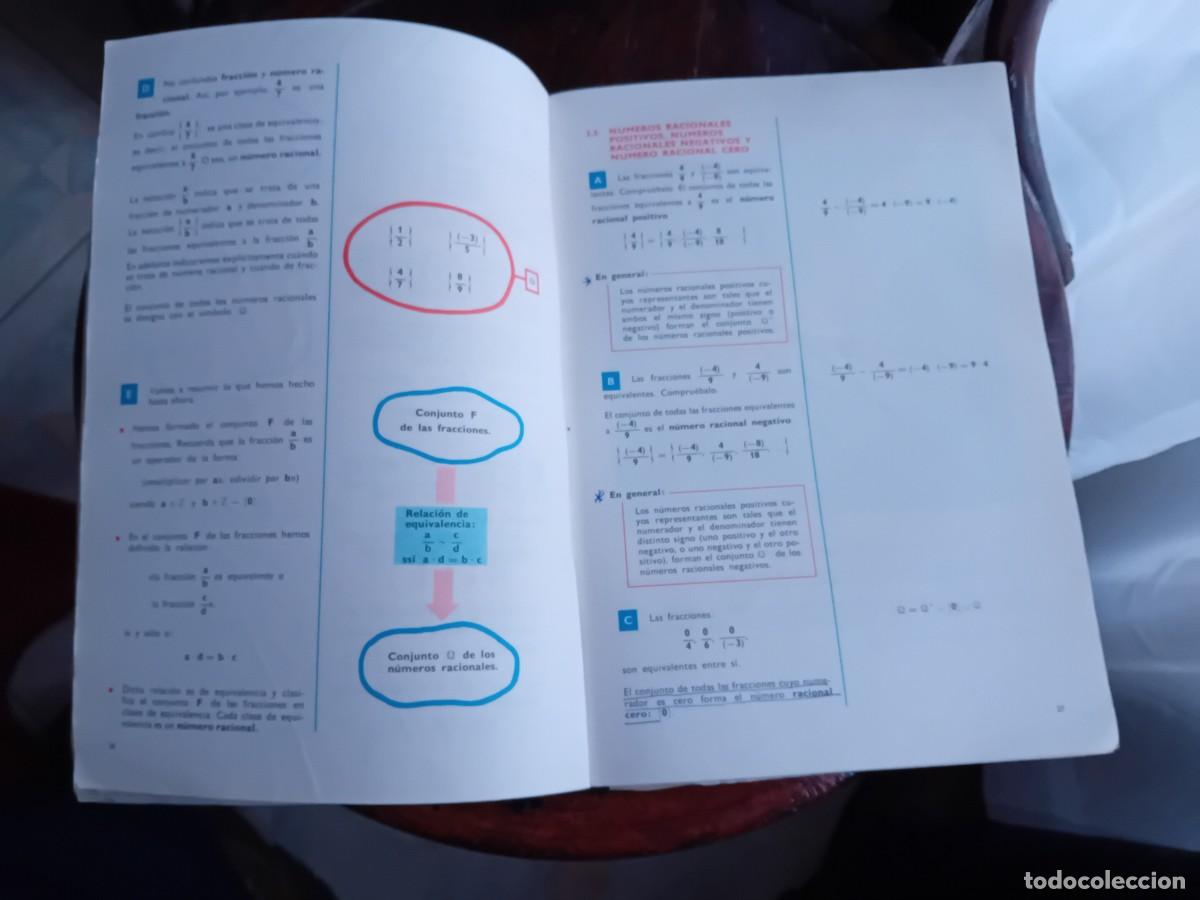 D No confundas fracción y número ra-
cional. Así, por ejemplo, 4/7 es una
fracción.
En cambio |4/7| es una clase de equivalencia,
es decir, el conjunto de todas las fracciones
equivalentes a 4/7. O sea, un número racional.
La notación a/b indica que se trata de una
fracción de numerador a y denominador b.
La notación |a/b| indica que se trata de todas
las fracciones equivalentes a la fracción a/b
En adelante indicaremos explícitamente cuándo
se trata de número racional y cuándo de frac-
ción.
El conjunto de todos los números racionales
se designa con el símbolo Q.
|1/2| |(-3)/5|
|4/7| |8/9|
Q
E Vamos a resumir lo que hemos hecho
hasta ahora.
Hemos formado el conjunto F de las
fracciones. Recuerda que la fracción a/b es
un operador de la forma:
(multiplicar por a, dividir por b)
siendo a ∈ Z y b ∈ Z - |0|
En el conjunto F de las fracciones hemos
definido la relación:
«la fracción a/b es equivalente a
la fracción c/d»,
si y sólo si:
a · d = b · c
Dicha relación es de equivalencia y clasi-
fica el conjunto F de las fracciones en
clases de equivalencia. Cada clase de equi-
valencia es un número racional.
Conjunto F
de las fracciones.
Relación de
equivalencia:
a/b ~ c/d
ssi a · d = b · c
Conjunto Q de los
números racionales.
NUMEROS RACIONALES
POSITIVOS, NUMEROS
RACIONALES NEGATIVOS Y
NUMERO RACIONAL CERO
A Las fracciones 4/9 y (-4)/(-9) son equiva-
lentes. Compruébalo. El conjunto de todas las
fracciones equivalentes a 4/9 es el número
racional positivo
|4/9| = |4/9, (-4)/(-9), 8/18 |
4/9 ~ (-4)/(-9) = 4 · (-9) = 9 · (-4)
En general:
Los números racionales positivos cu-
yos representantes son tales que el
numerador y el denominador tienen
ambos el mismo signo (positivo o
negativo) forman el conjunto Q+
de los números racionales positivos.
B Las fracciones (-4)/9 y 4/(-9) son
equivalentes. Compruébalo.
El conjunto de todas las fracciones equivalentes
a (-4)/9 es el número racional negativo
|(-4)/9| = |(-4)/9, 4/(-9), (-8)/18 |
(-4)/9 ~ 4/(-9) = (-4) · (-9) = 9 · 4
En general:
Los números racionales positivos cu-
yos representantes son tales que el
numerador y el denominador tienen
distinto signo (uno positivo y el otro
negativo, o uno negativo y el otro po-
sitivo), forman el conjunto Q- de los
números racionales negativos.
C Las fracciones:
0/4, 0/6, 0/(-3)
son equivalentes entre sí.
El conjunto de todas las fracciones cuyo nume-
rador es cero forma el número racional
cero: |0|
todocoleccion